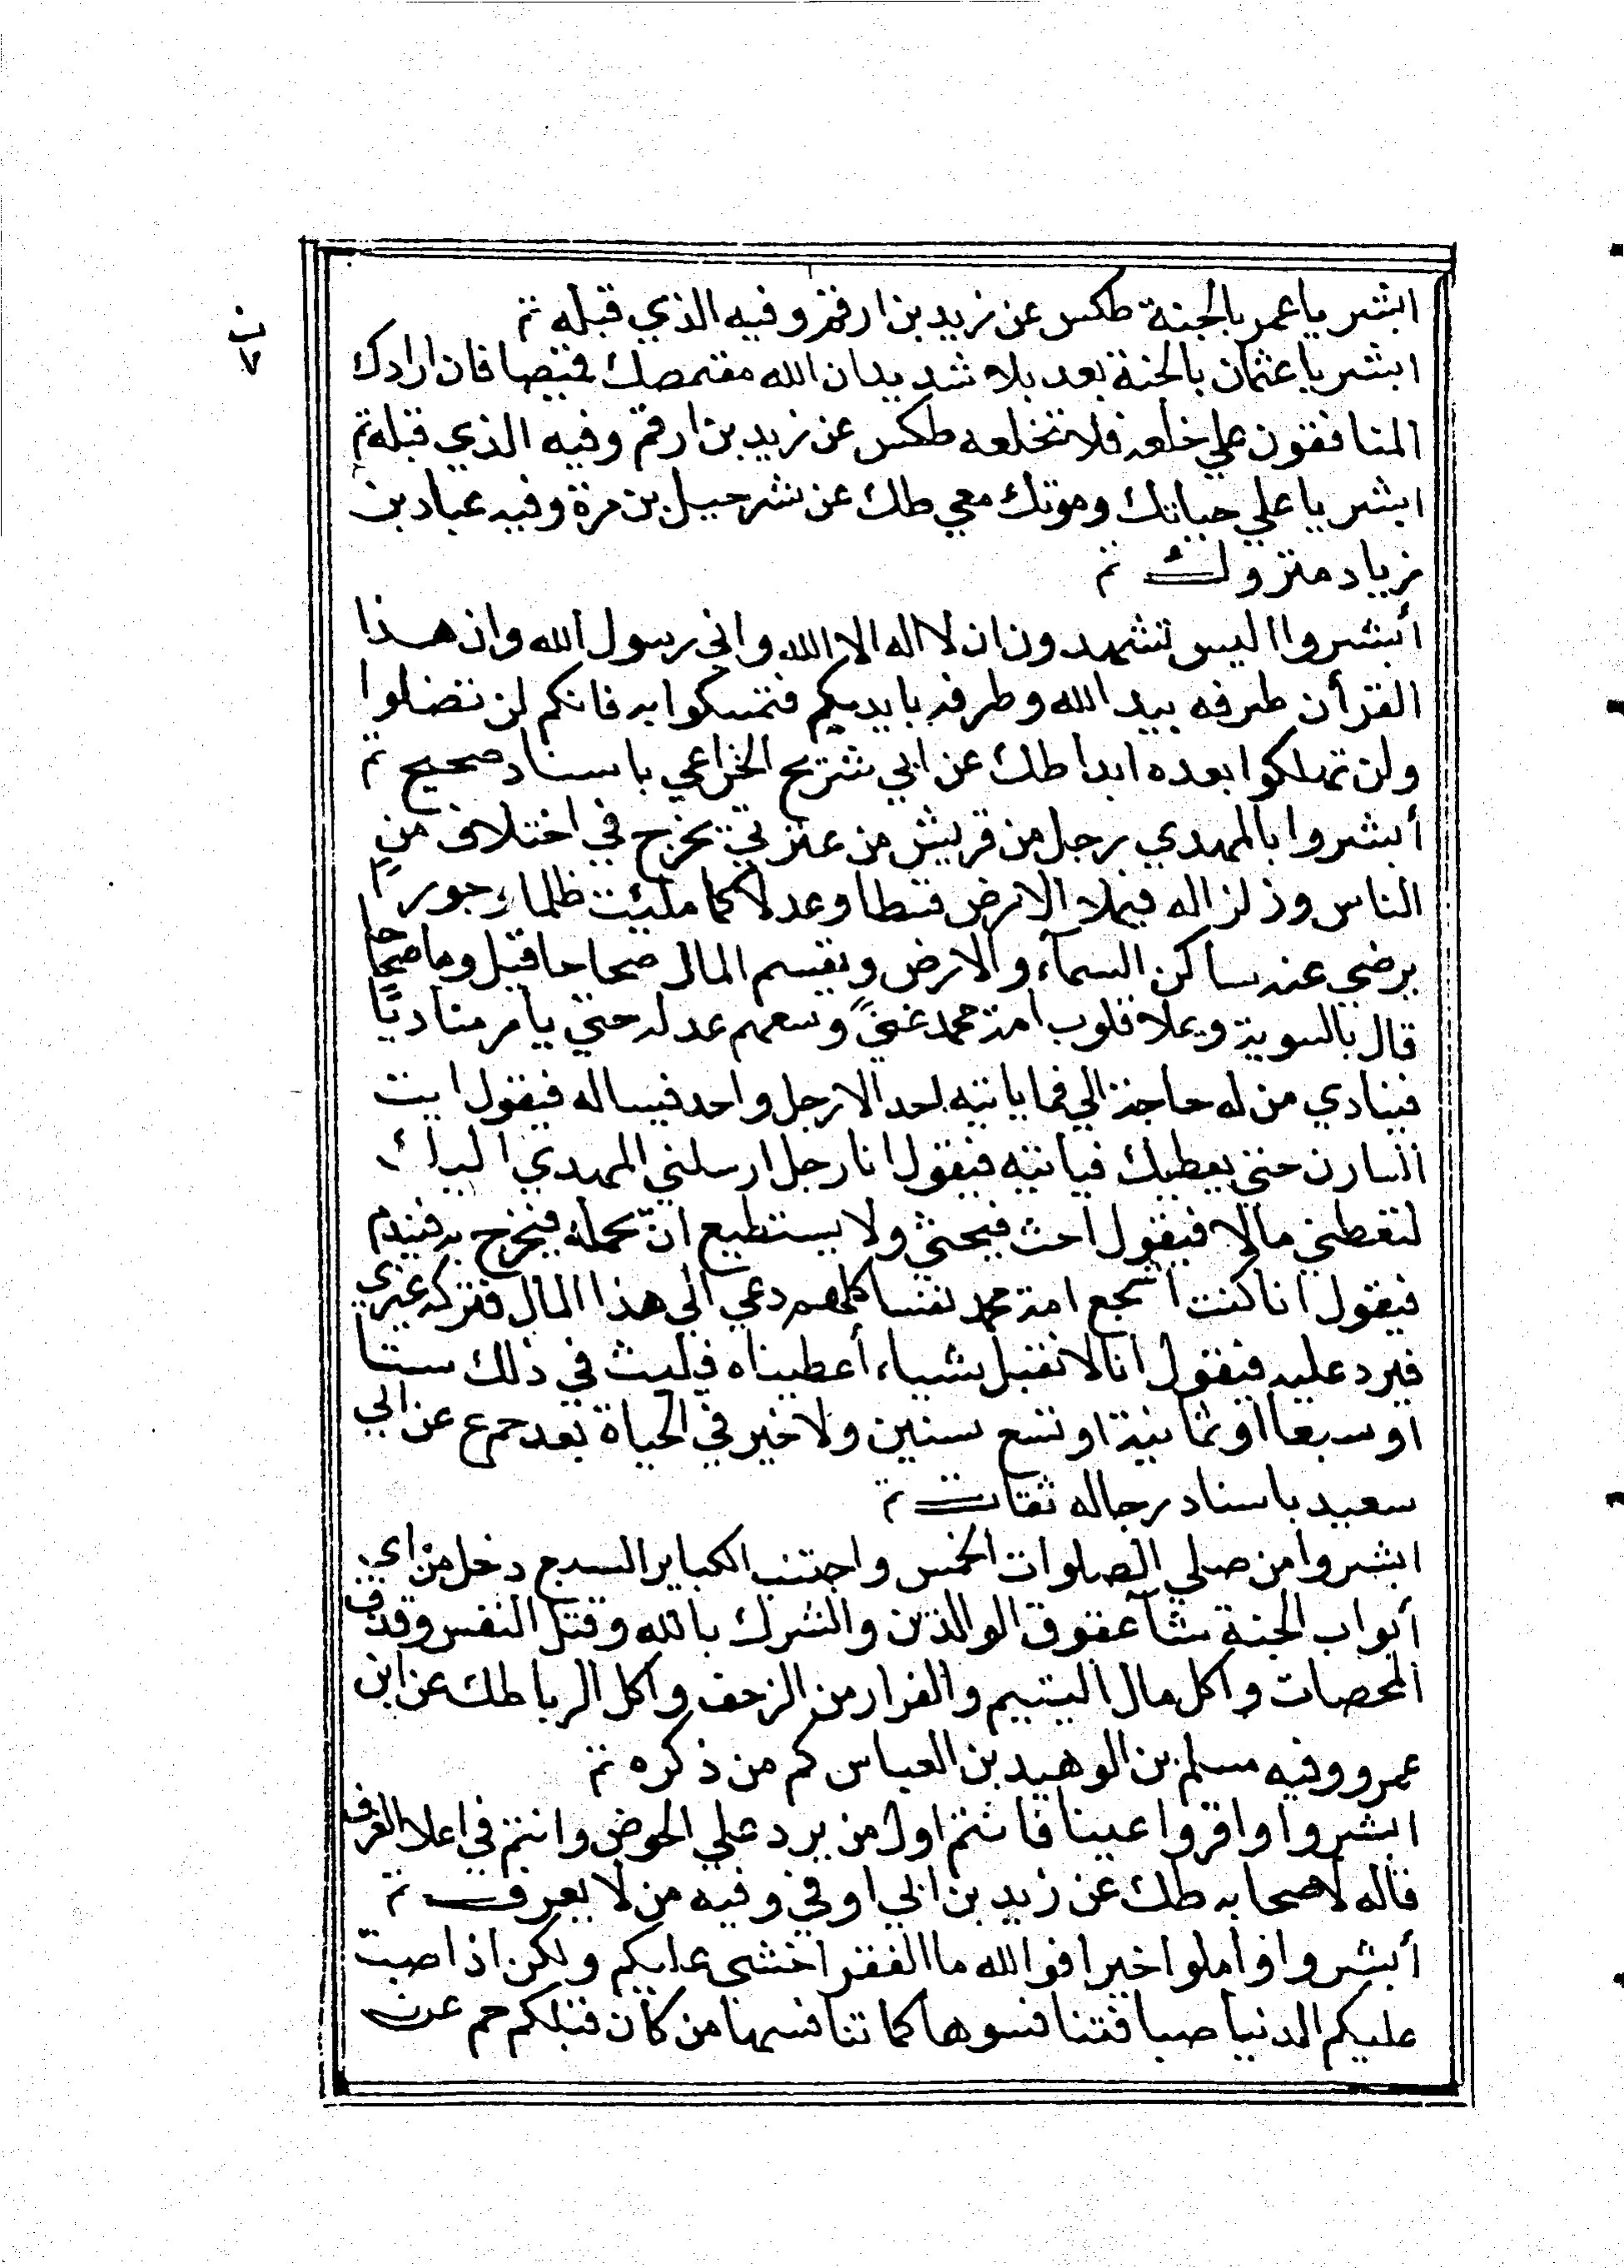 ابشر ياعمر بالجنة طكس عن زيد بن ارقم وفيه الذي قبله تم
ب
٧
ابشر ياعثمان بالجنة بعد بلاء شديد ان الله مقمصك قميصا فان ارادك
المنافقون علي خلعه فلا تخلعه طكس عن زيد بن ارقم وفيه الذي قبله تم
ابشر يا علي حياتك وموتك معي طك عن شرحبيل بن مرة وفيه عباد بن
زياد متروك تم
أبشروا اليس تشهدون ان لا اله الا الله واني رسول الله وان هذا
القرأن طرفه بيد الله وطرفه بايديكم فتمسكوا به فانكم لن تضلوا
ولن تهلكوا بعده ابدا طك عن ابي شريح الخزاعي باسناد صحيح تم
أبشروا بالمهدي رجل من قريش من عترتي يخرج في اختلاف من
الناس وزلزاله فيملا الارض قسطا وعدلا كما ملئت ظلما وجورا
يرضي عنه ساكن السمآء والارض ويقسم المال صحاحا قيل وما صحاحا
قال بالسوية ويملا قلوب امة محمد غنيً وسعهم عدله حتي يامر مناديًا
فينادي من له حاجة الي فما ياتيه احد الا رجل واحد فيساله فيقول ايت
السارن حتي يعطيك فياتيه فيقول انا رجل ارسلني المهدي اليك
لتعطني مالا فيقول احث فيحثي ولا يستطيع ان يحمله فيخرج به فيندم
فيقول انا كنت اشجع امة محمد نفسا كلهم دعي الي هذا المال فتركه غيري
فيرد عليه فيقول انا لا نقبل شياء أعطيناه فيلبث في ذلك ستا
او سبعا او ثمانية او تسع سنين ولا خير في الحياة بعد حم ع عن ابي
سعيد باسناد رجاله ثقات تم
ابشروا من صلي الصلوات الخمس واجتنب الكباير السبع دخل من اي
أبواب الجنة شآ عقوق الوالدين والشرك بالله وقتل النفس وقذف
المحصات واكل مال اليتيم والفرار من الزحف واكل الربا طك عن ابن
عمرو وفيه مسلم بن الوهيد بن العباس كم من ذكره تم
ابشروا واقروا عينا فانتم اول من يرد علي الحوض وانتم في اعلا الغرف
قاله لاصحابه طك عن زيد بن ابي اوفي وفيه من لا يعرف تم
أبشروا واملوا خيرا فوالله ما الفقر اخشي عليكم ولكن اذا صبت
عليكم الدنيا صبا فتنافسوها كما تنافسها من كان قبلكم حم عن